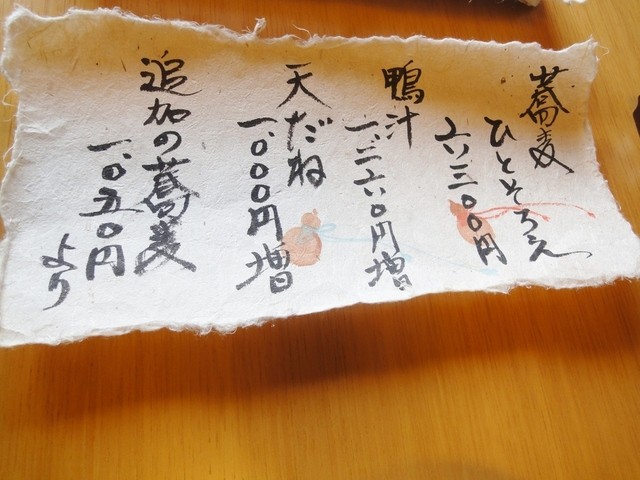 蕎麦
ひとそろえ
六、三〇〇円
鴨汁
一、二六〇円増
天だね
一、〇〇〇円増
追加の蕎麦
一、〇五〇円
より